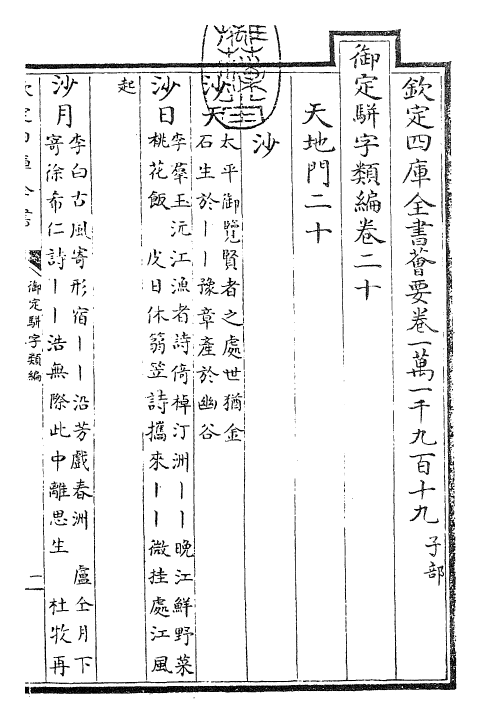 欽定四庫全書薈要卷一萬一千九百十九 子部
御定駢字類編卷二十
天地門二十
沙
沙天 太平御覽賢者之處世猶金
石生於丨丨豫章產於幽谷
沙日 李羣玉沅江漁者詩倚棹汀洲丨丨晚江鮮野菜
桃花飯 皮日休蒻笠詩攜來丨丨微挂處江風
起
沙月 李白古風寄形宿丨丨沿芳戲春洲 盧仝月下
寄徐希仁詩丨丨浩無際此中離思生 杜牧再
御定駢字類編